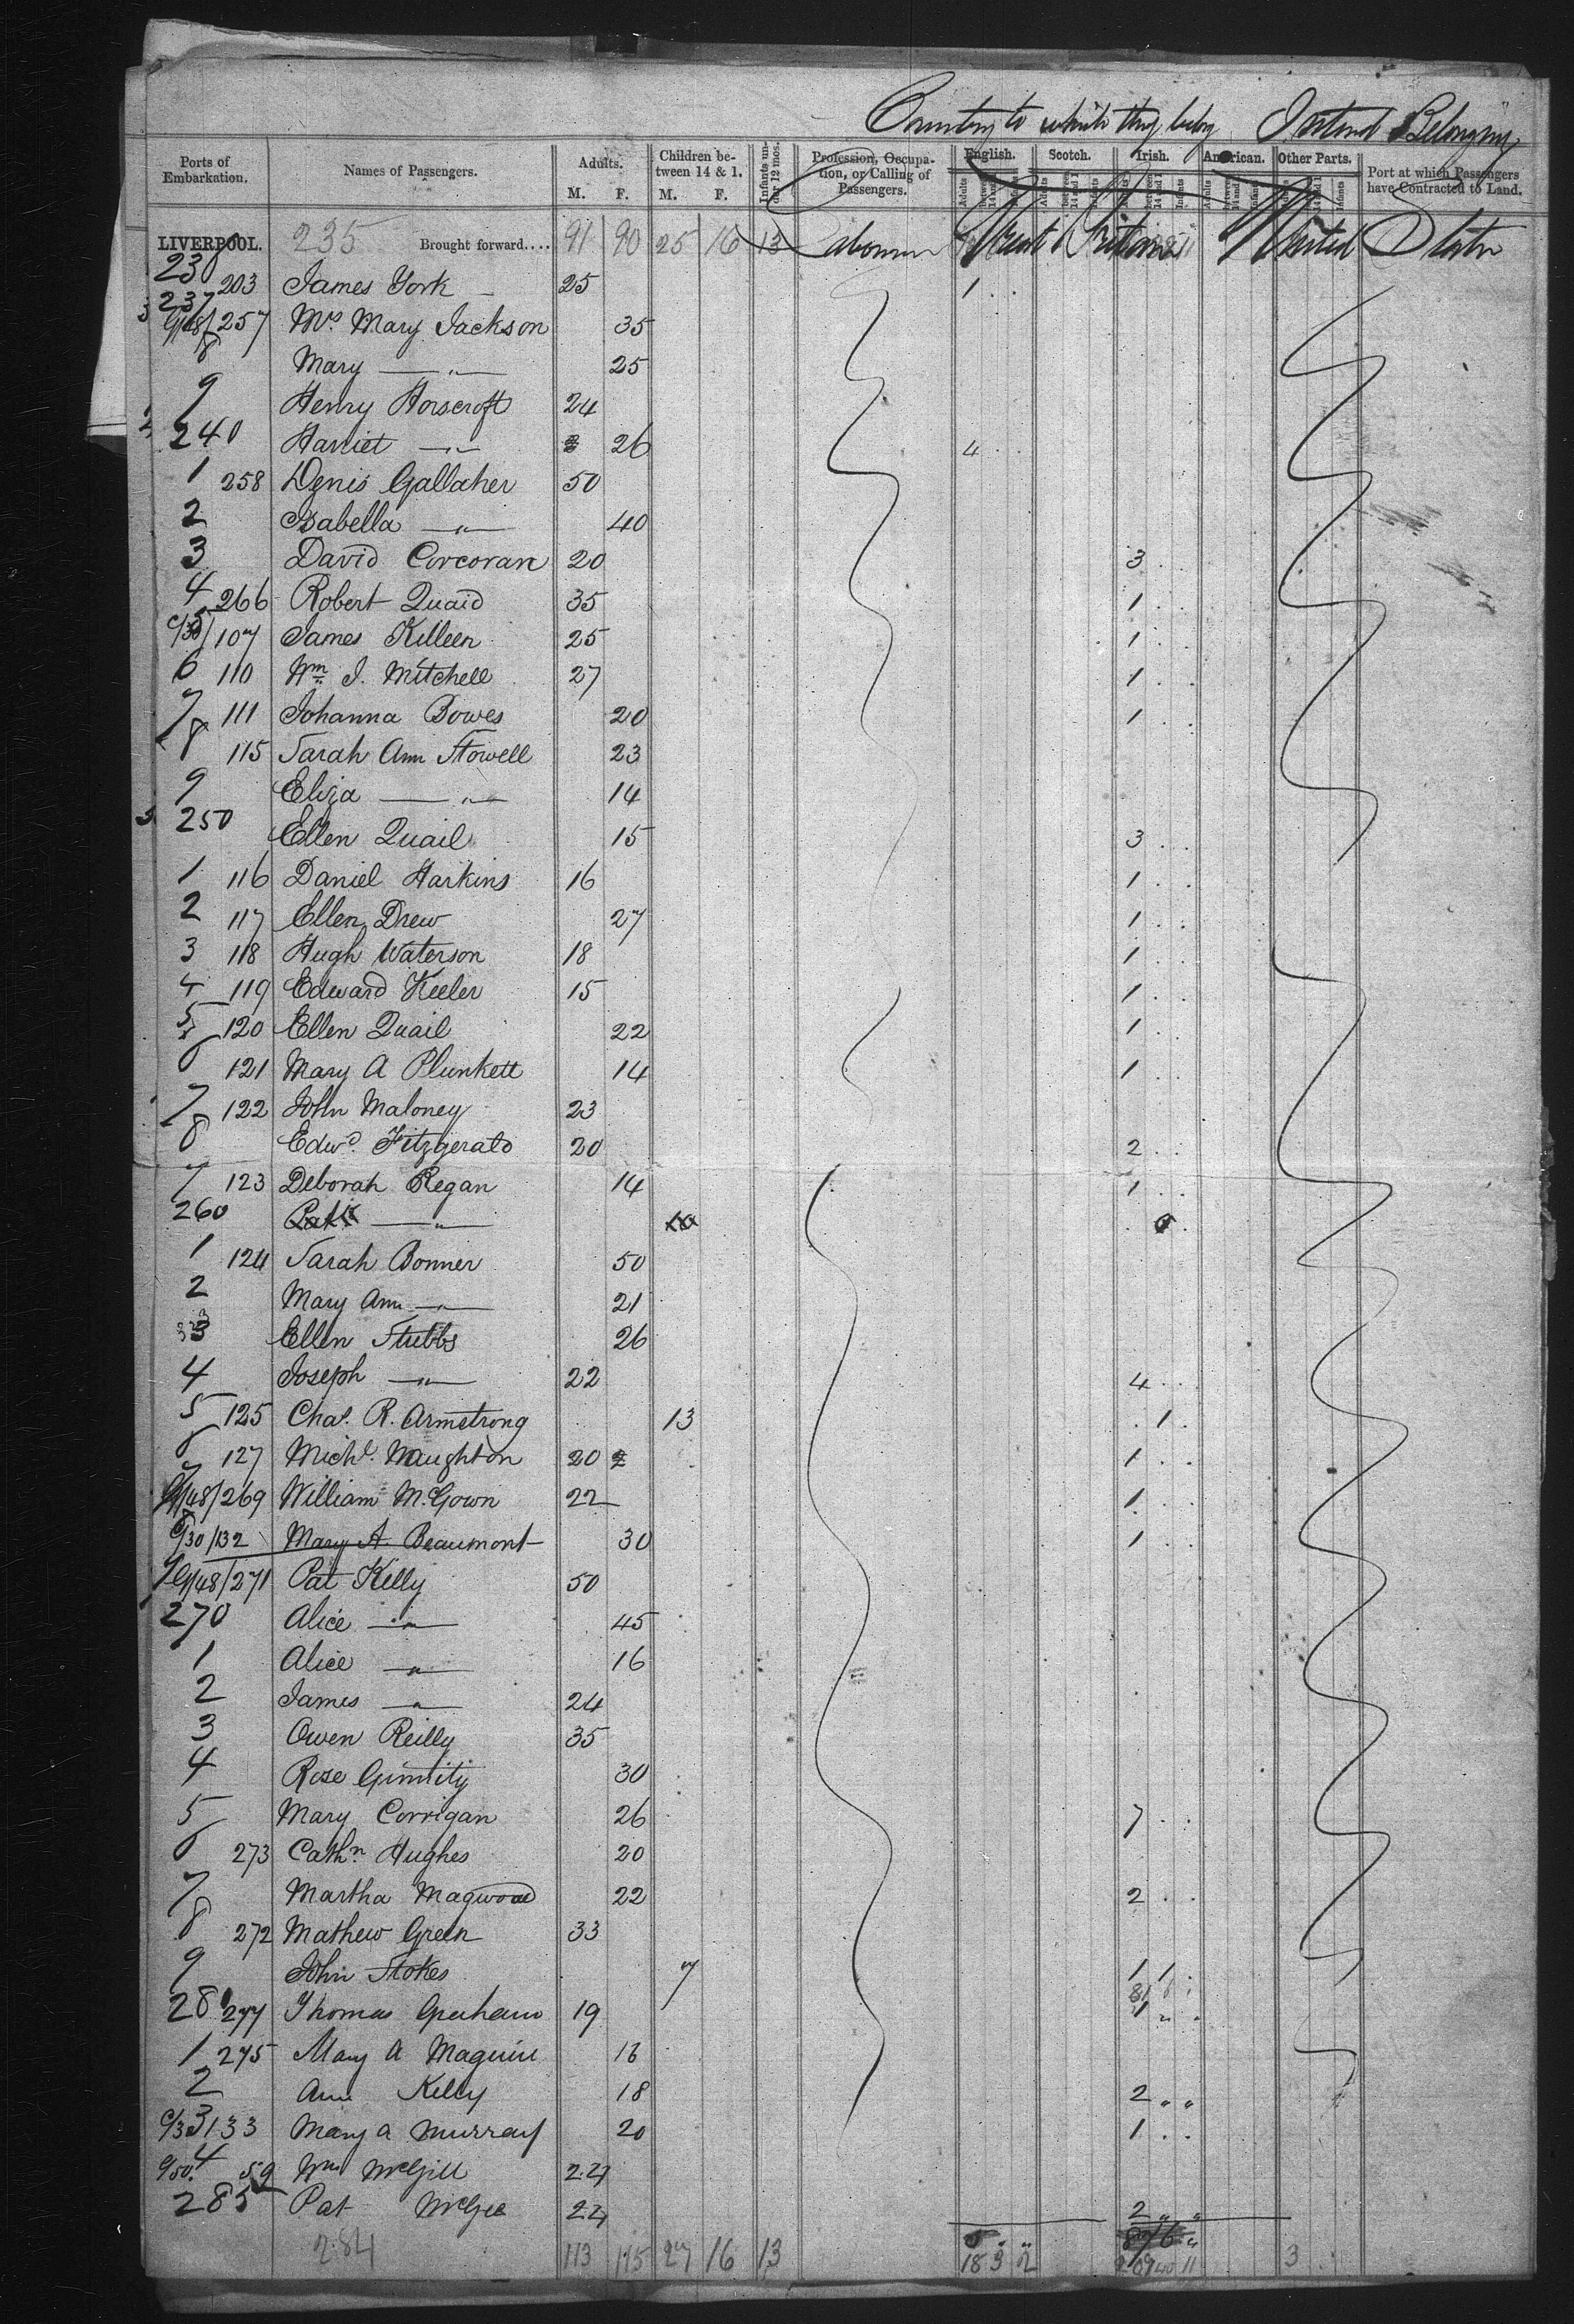 Country to which they belong Intend Belonging
Ports of Embarkation. Names of Passengers. Adults. M. F. Children between 14 & 1. M. F. Infants under 12 mos. Profession, Occupation, or Calling of Passengers. English. Scotch. Irish. American. Other Parts. Port at which Passengers have Contracted to Land.
LIVERPOOL. 235 Brought forward.... 91 90 25 16 13 Labourer Great Britain United States
203 James York 25 1
237 257 Mrs Mary Jackson 35
8 Mary —"— 25
9 Henry Horscroft 24
240 Harriet —"— 26 4
1 258 Denis Gallaher 50
2 Isabella —"— 40
3 David Corcoran 20 3
4 266 Robert Quaid 35 1
C/30/107 James Killeen 25 1
6 110 Wm J. Mitchell 27 1
7 111 Johanna Bowes 20 1
8 115 Sarah Ann Stowell 23
9 Eliza —"— 14
250 Ellen Quail 15 3
1 116 Daniel Harkins 16 1
2 117 Ellen Drew 27 1
3 118 Hugh Waterson 18 1
4 119 Edward Keeler 15 1
5 120 Ellen Quail 22 1
6 121 Mary A Plunkett 14 1
7 122 John Maloney 23
8 Edwd. Fitzgerald 20 2
123 Deborah Regan 14 1
260 Patk —"— 10
1 124 Sarah Bonner 50
2 Mary Ann —"— 21
3 Ellen Stubbs 26
4 Joseph —"— 22 4
5 125 Chas. R. Armstrong 13 1
6 127 Michl. Naughton 20 1
48/269 William McGown 22 1
C/30/132 Mary A. Beaumont 30 1
48/271 Pat Kelly 50
270 Alice —"— 45
1 Alice —"— 16
2 James —"— 24
3 Owen Reilly 35
4 Rose 30
5 Mary Corrigan 26 7
6 273 Cathn Hughes 20
7 Martha Magwood 22 2
8 272 Mathew Green 33
9 John Stokes 7 1 1
277 Thomas Graham 19 1 "
1 275 Mary A Maguire 16
2 Ann Kelly 18 2 " "
133 Mary A Murray 20 1
4 59 Wm McGill 24
285 Pat McGee 24 2 " "
284 113 115 27 16 13 18 3 2 209 40 11 3